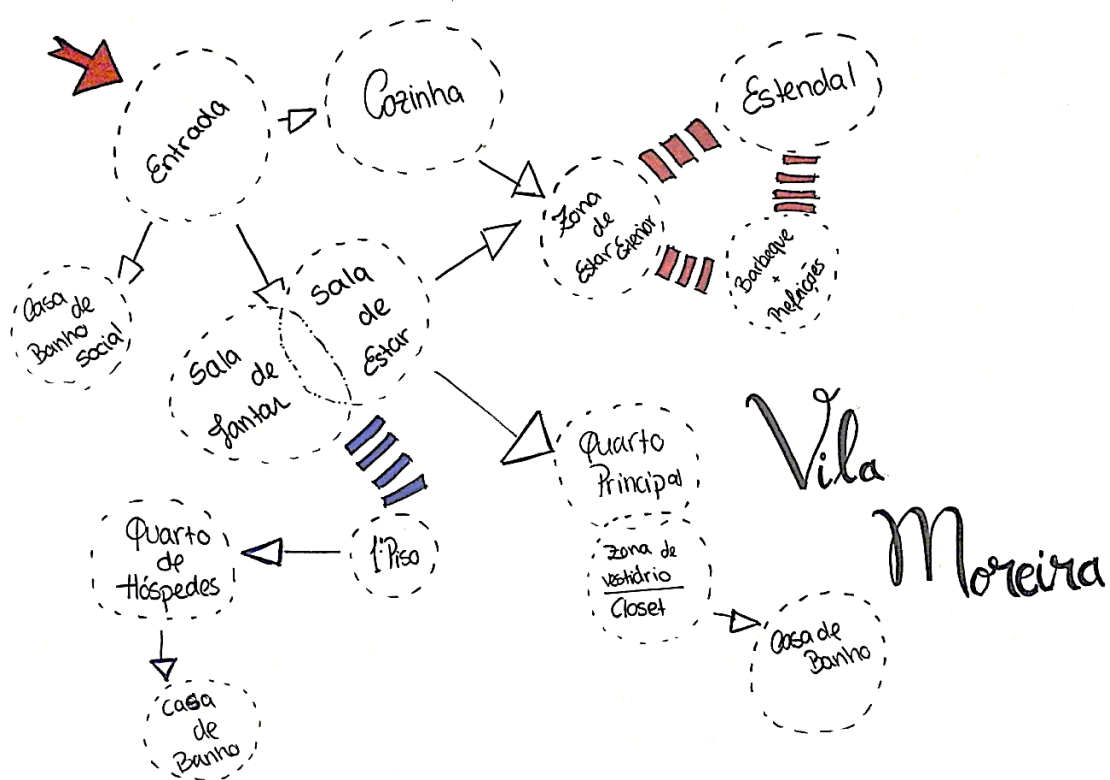 Entrada
Cozinha
Estendal
Zona
de
Estar Exterior
Barbeque
+
Refeições
Casa
de
Banho
Social
Sala
de
Estar
Sala
de
Jantar
Quarto
Principal
Zona de
Vestidrio
Closet
Casa de
Banho
1º Piso
Quarto
de
Hóspedes
Casa
de
Banho
Vila
Moreira